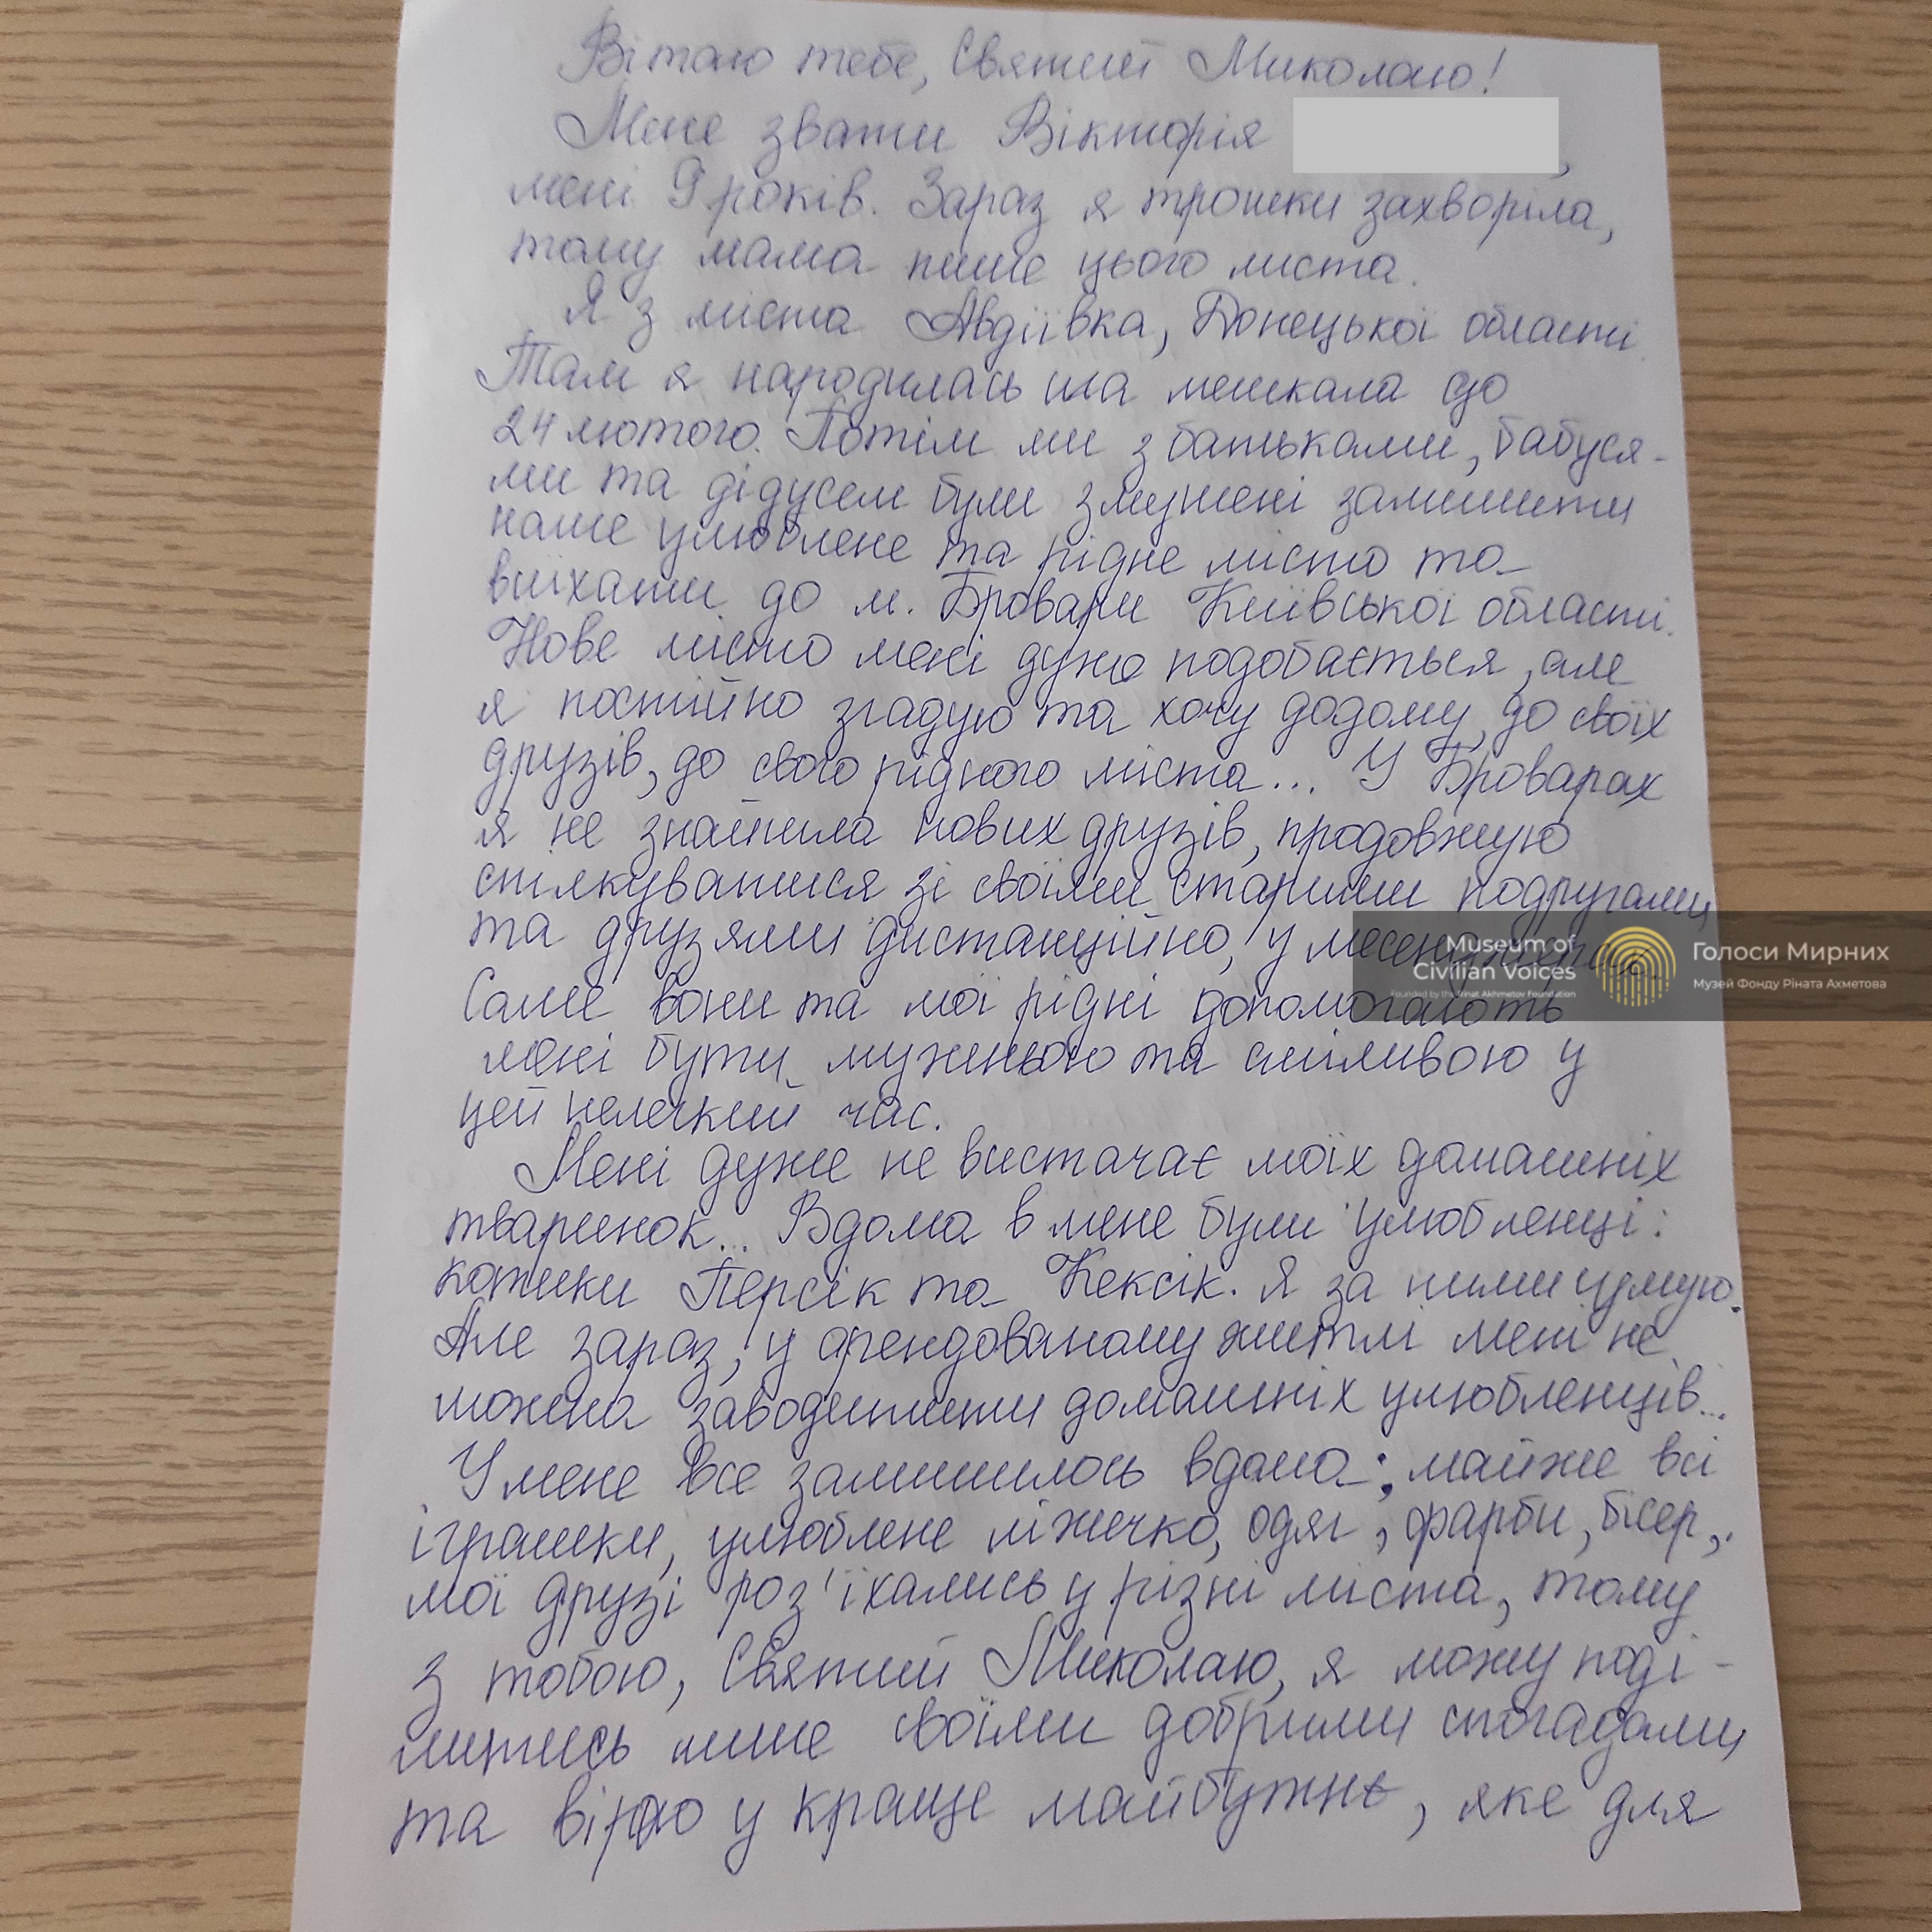 Вітаю тебе, Святий Миколаю!
Мене звати Вікторія ,
мені 9 років. Зараз я трошки захворіла,
тому мама пише цього листа.
Я з міста Авдіївка, Донецької області.
Там я народилась та мешкала до
24 лютого. Потім ми з батьками, бабуся-
ми та дідусем були змушені залишити
наше улюблене та рідне місто та
виїхати до м. Бровари Київської області.
Нове місто мені дуже подобається, але
я постійно згадую та хочу додому, до своїх
друзів, до свого рідного міста... У Броварах
я не знайшла нових друзів, продовжую
спілкуватися зі своїми старими подругами
та друзями дистанційно, у месенджерах.
Саме вони та мої рідні допомогають
мені бути мужньою та сміливою у
цей нелегкий час.
Мені дуже не вистачає моїх домашніх
тваринок... Вдома в мене були улюбленці:
котики Персік та Кексік. Я за ними сумую.
Але зараз, у арендованому житлі мені не
можна заводити домашніх улюбленців...
У мене все залишилось вдома: майже всі
іграшки, улюблене ліжечко, одяг, фарби, бісер,
мої друзі роз'їхались у різні міста, тому
з тобою, Святий Миколаю, я можу поді-
литись лише своїми добрими спогадами
та вірою у краще майбутнє, яке для
Museum of
Civilian Voices
Founded by the Rinat Akhmetov Foundation
Голоси Мирних
Музей Фонду Ріната Ахметова